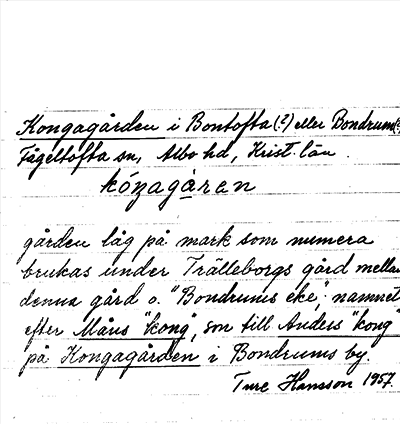 Kongagården i Bontofta (?) eller Bondrum (?)
Fågeltofta sn, Albo hd, Krist. län.
kóŋagåren
gården låg på mark som numera
brukas under Trälleborgs gård mellan
denna gård o. "Bondrums eke", namnet
efter Måns "kong", son till Anders "kong"
på Kongagården i Bondrums by.
Ture Hansson 1957.